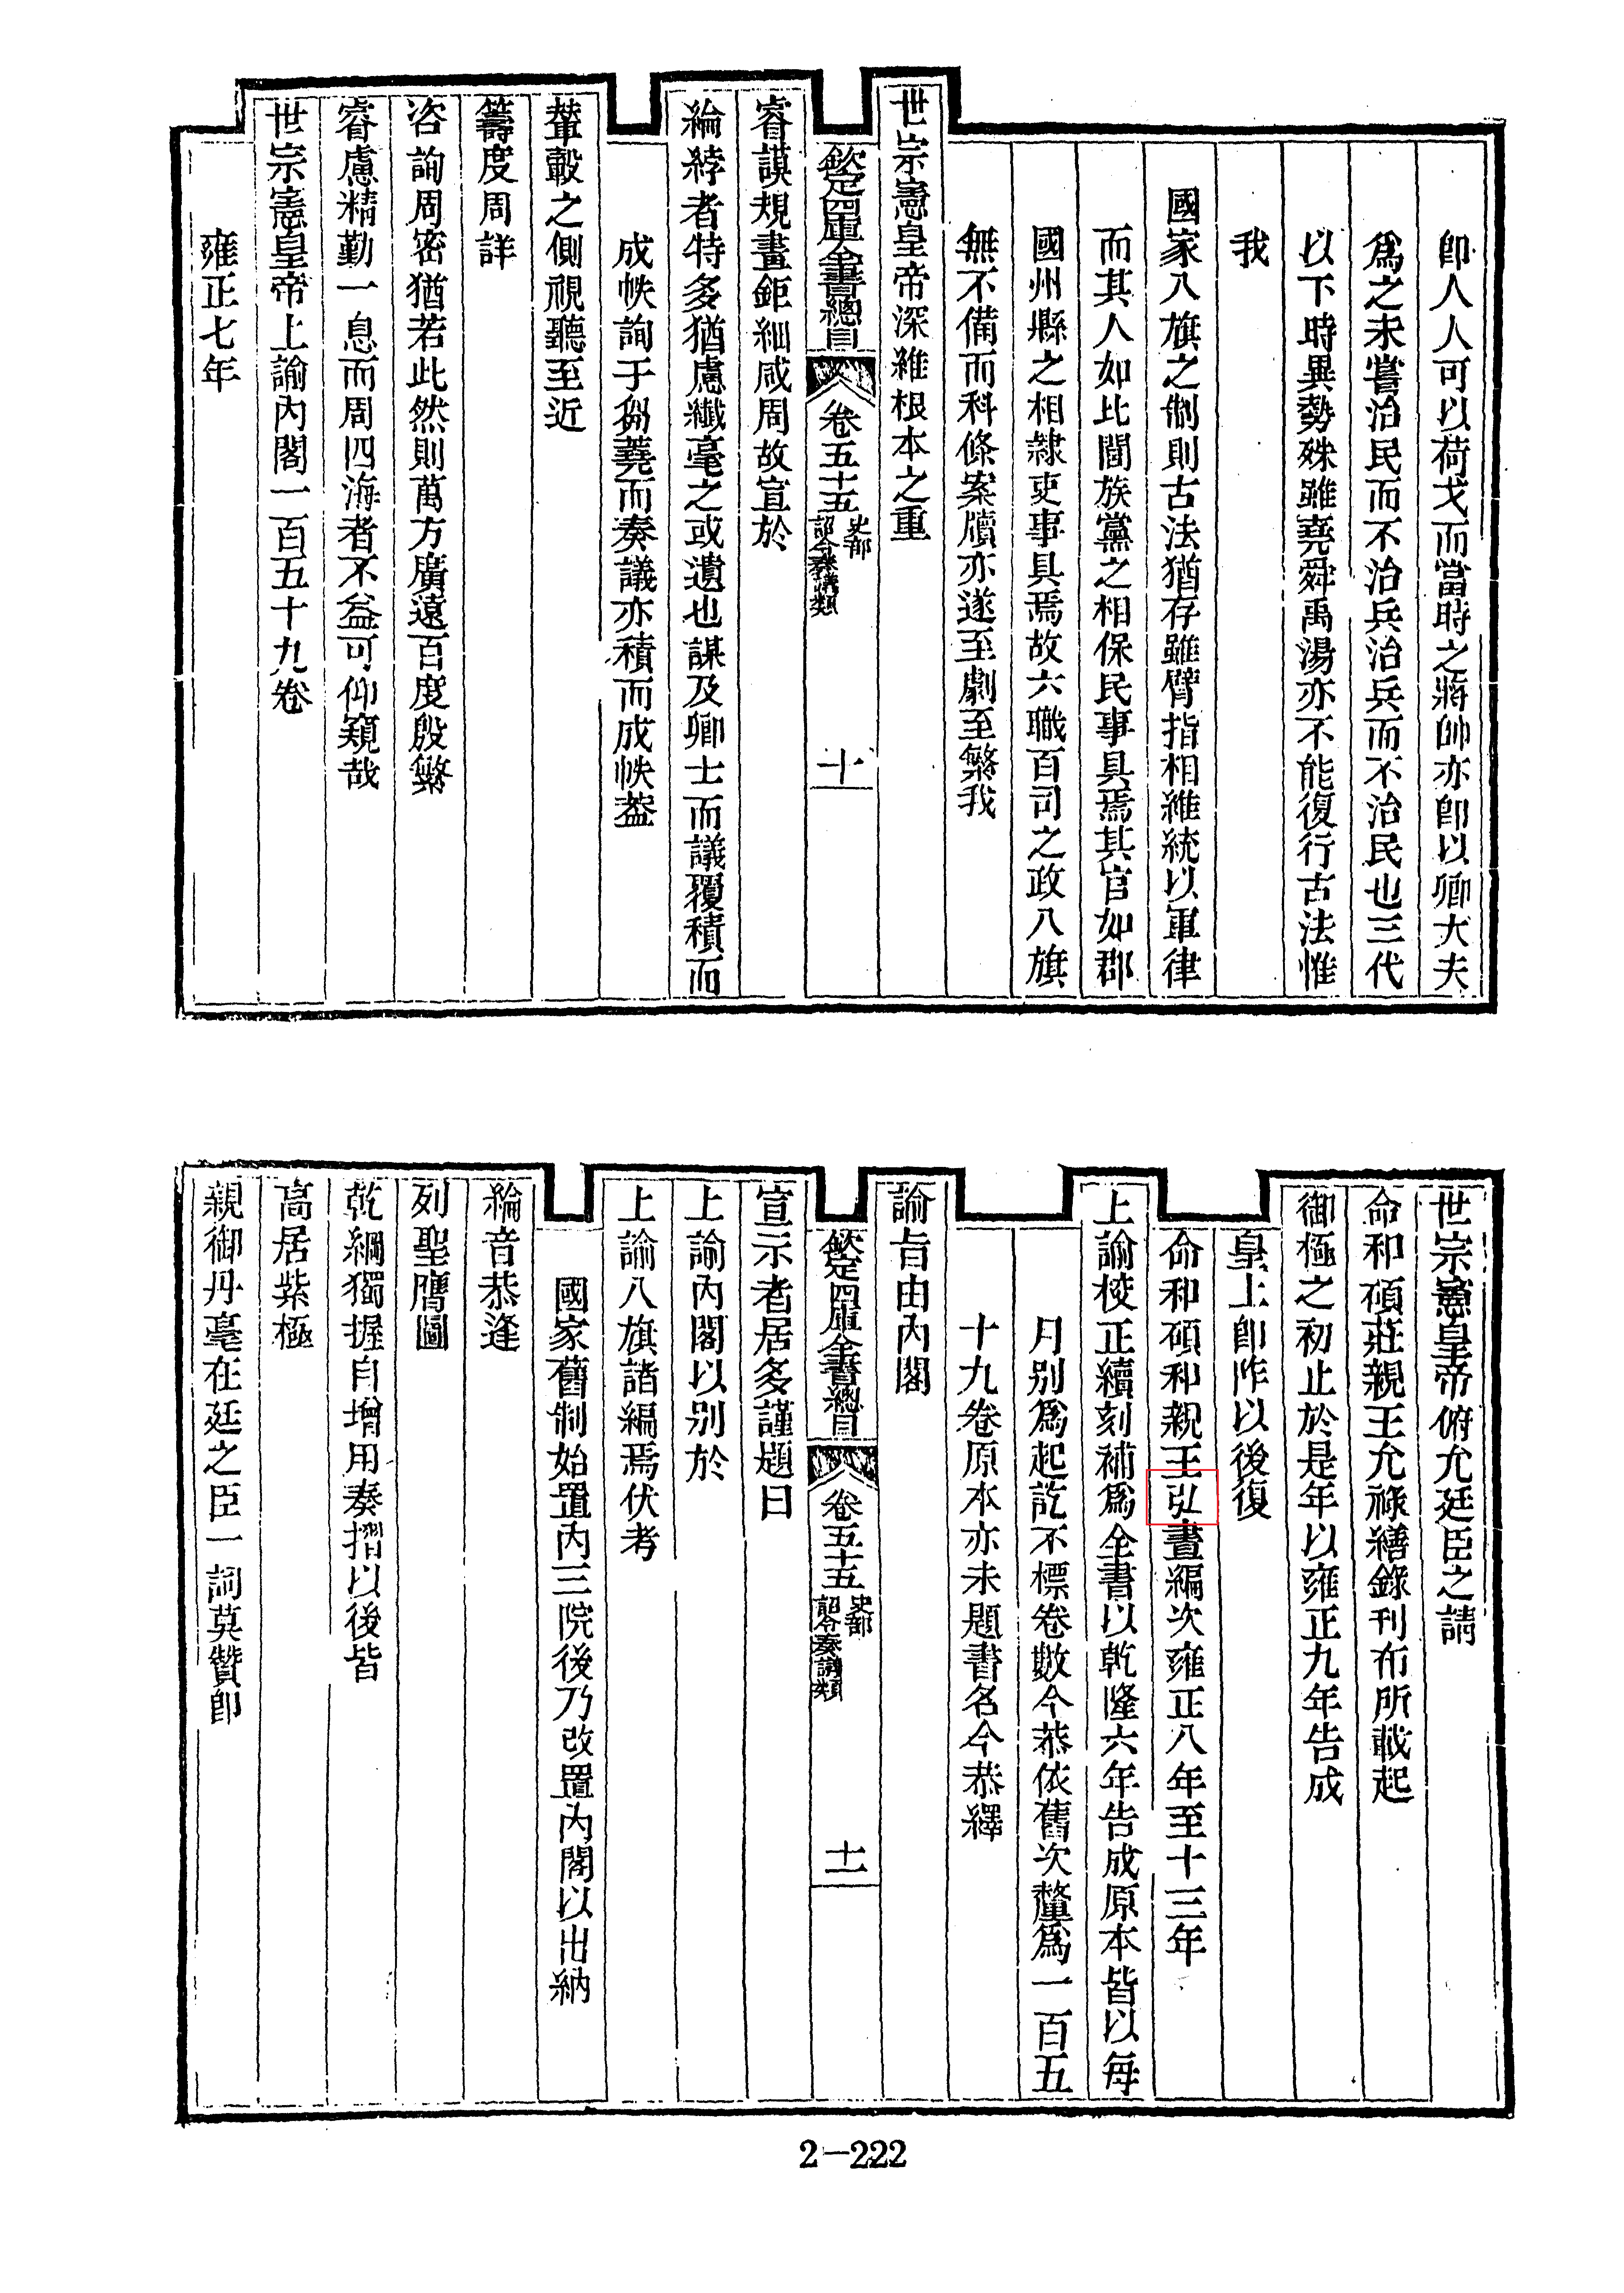 卽人人可以荷戈而當時之將帥亦卽以卿大夫
爲之未嘗治民而不治兵治兵而不治民也三代
以下時異勢殊雖堯舜禹湯亦不能復行古法惟
我
國家八旗之制則古法猶存雖臂指相維統以軍律
而其人如比閭族黨之相保民事具焉其官如郡
國州縣之相隸吏事具焉故六職百司之政八旗
無不備而科條案牘亦遂至劇至繁我
世宗憲皇帝深維根本之重
欽定四庫全書總目 卷五十五 史部 詔令奏議類 十
睿謨規畫鉅細咸周故宣於
綸綍者特多猶慮纖毫之或遺也謀及卿士而議覆積而
成帙詢于芻蕘而奏議亦積而成帙蓋
輦轂之側視聽至近
籌度周詳
咨詢周密猶若此然則萬方廣遠百度殷繁
睿慮精勤一息而周四海者不益可仰窺哉
世宗憲皇帝上諭內閣一百五十九卷
雍正七年
世宗憲皇帝俯允廷臣之請
命和碩莊親王允祿繕錄刊布所載起
御極之初止於是年以雍正九年告成
皇上卽阼以後復
命和碩和親王弘晝編次雍正八年至十三年
上諭校正續刻補爲全書以乾隆六年告成原本皆以每
月別爲起訖不標卷數今恭依舊次釐爲一百五
十九卷原本亦未題書名今恭繹
諭旨由內閣
欽定四庫全書總目 卷五十五 史部 詔令奏議類 十一
宣示者居多謹題曰
上諭內閣以別於
上諭八旗諸編焉伏考
國家舊制始置內三院後乃改置內閣以出納
綸音恭逢
列聖膺圖
乾綱獨握自增用奏摺以後皆
高居紫極
親御丹毫在廷之臣一詞莫贊卽
2-222